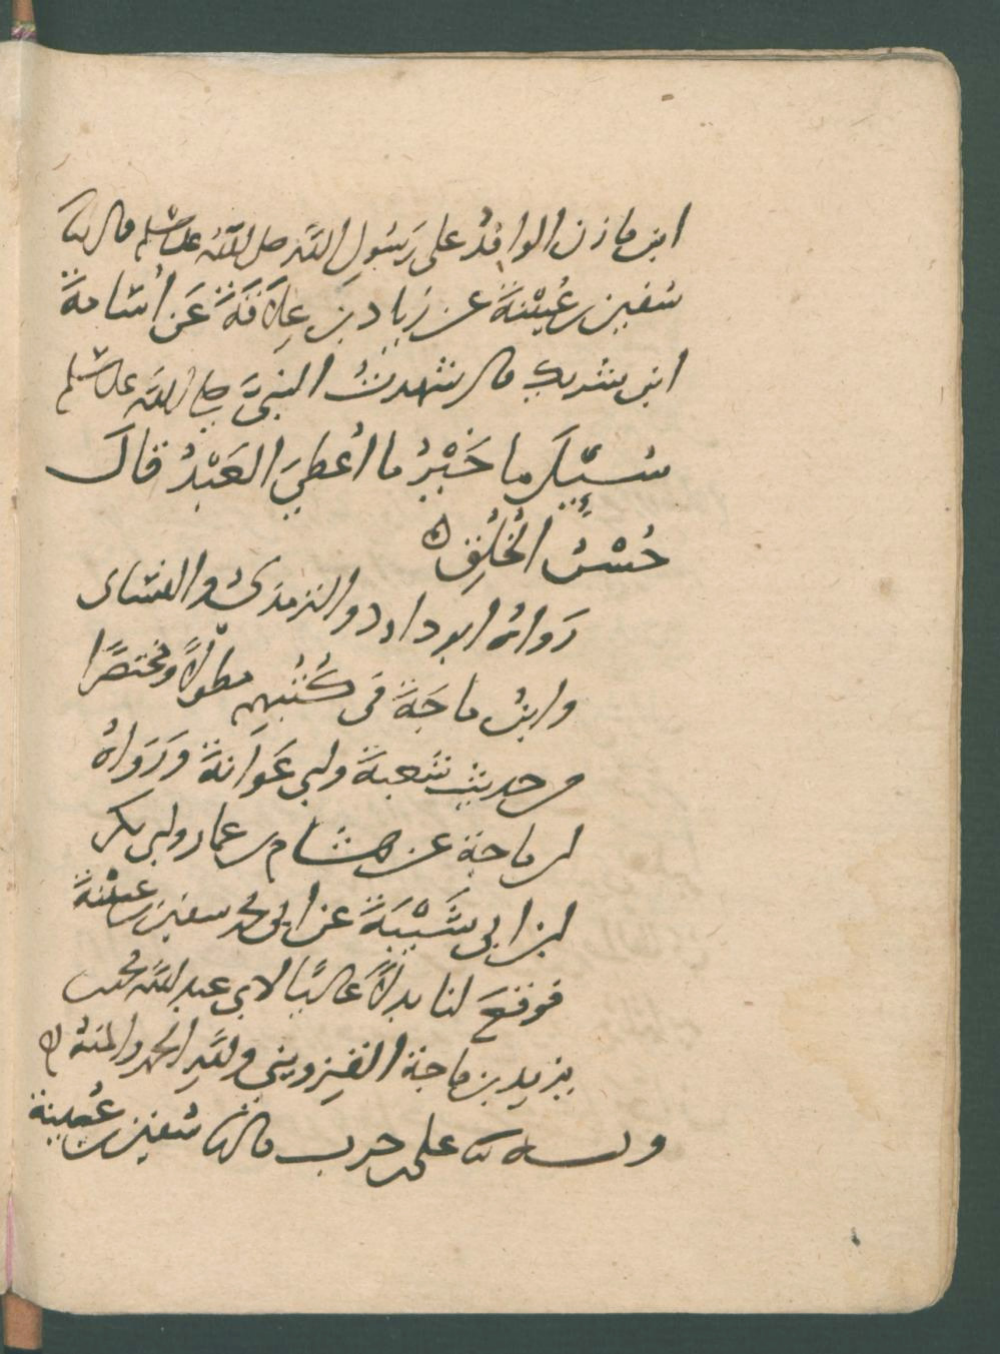 ابن مازن الوافدُ على رَسُولِ اللَّه صلى اللَّهُ عليه وسلم قال ثنا
سُفين بن عُيَيْنَةَ عن زياد بن عِلاَقَةَ عَن أُسَامةَ
ابن شريكٍ قال شهدتُ النبيَّ صلى اللَّه عليه وسلم
سُئِلَ ما خَيْرُ ما أُعطِيَ العَبْدُ قالَ
حُسْنُ الخُلُقِ ه
رَواهُ ابو داود والترمذىُّ والنسائى
وابنُ ماجَةَ فى كُتُبِهِم مطولاً ومختصرًا
من حديثِ شعبةَ وابى عَوانةَ وَرَوَاهُ
ابن ماجة عن هشام بن عمار وابى بكر
ابن ابى شَيْبَةَ عن ابى محمد سفين بن عيينةَ
فوقَعَ لنا بدلاً عاليًا لابى عبد اللَّه محمد بن
يزيد بن ماجة القزوينى وللَّهِ الحمد والمنةُ ه
وبه ثنا على بن حرب قال ثنا سُفين بن عُيينة